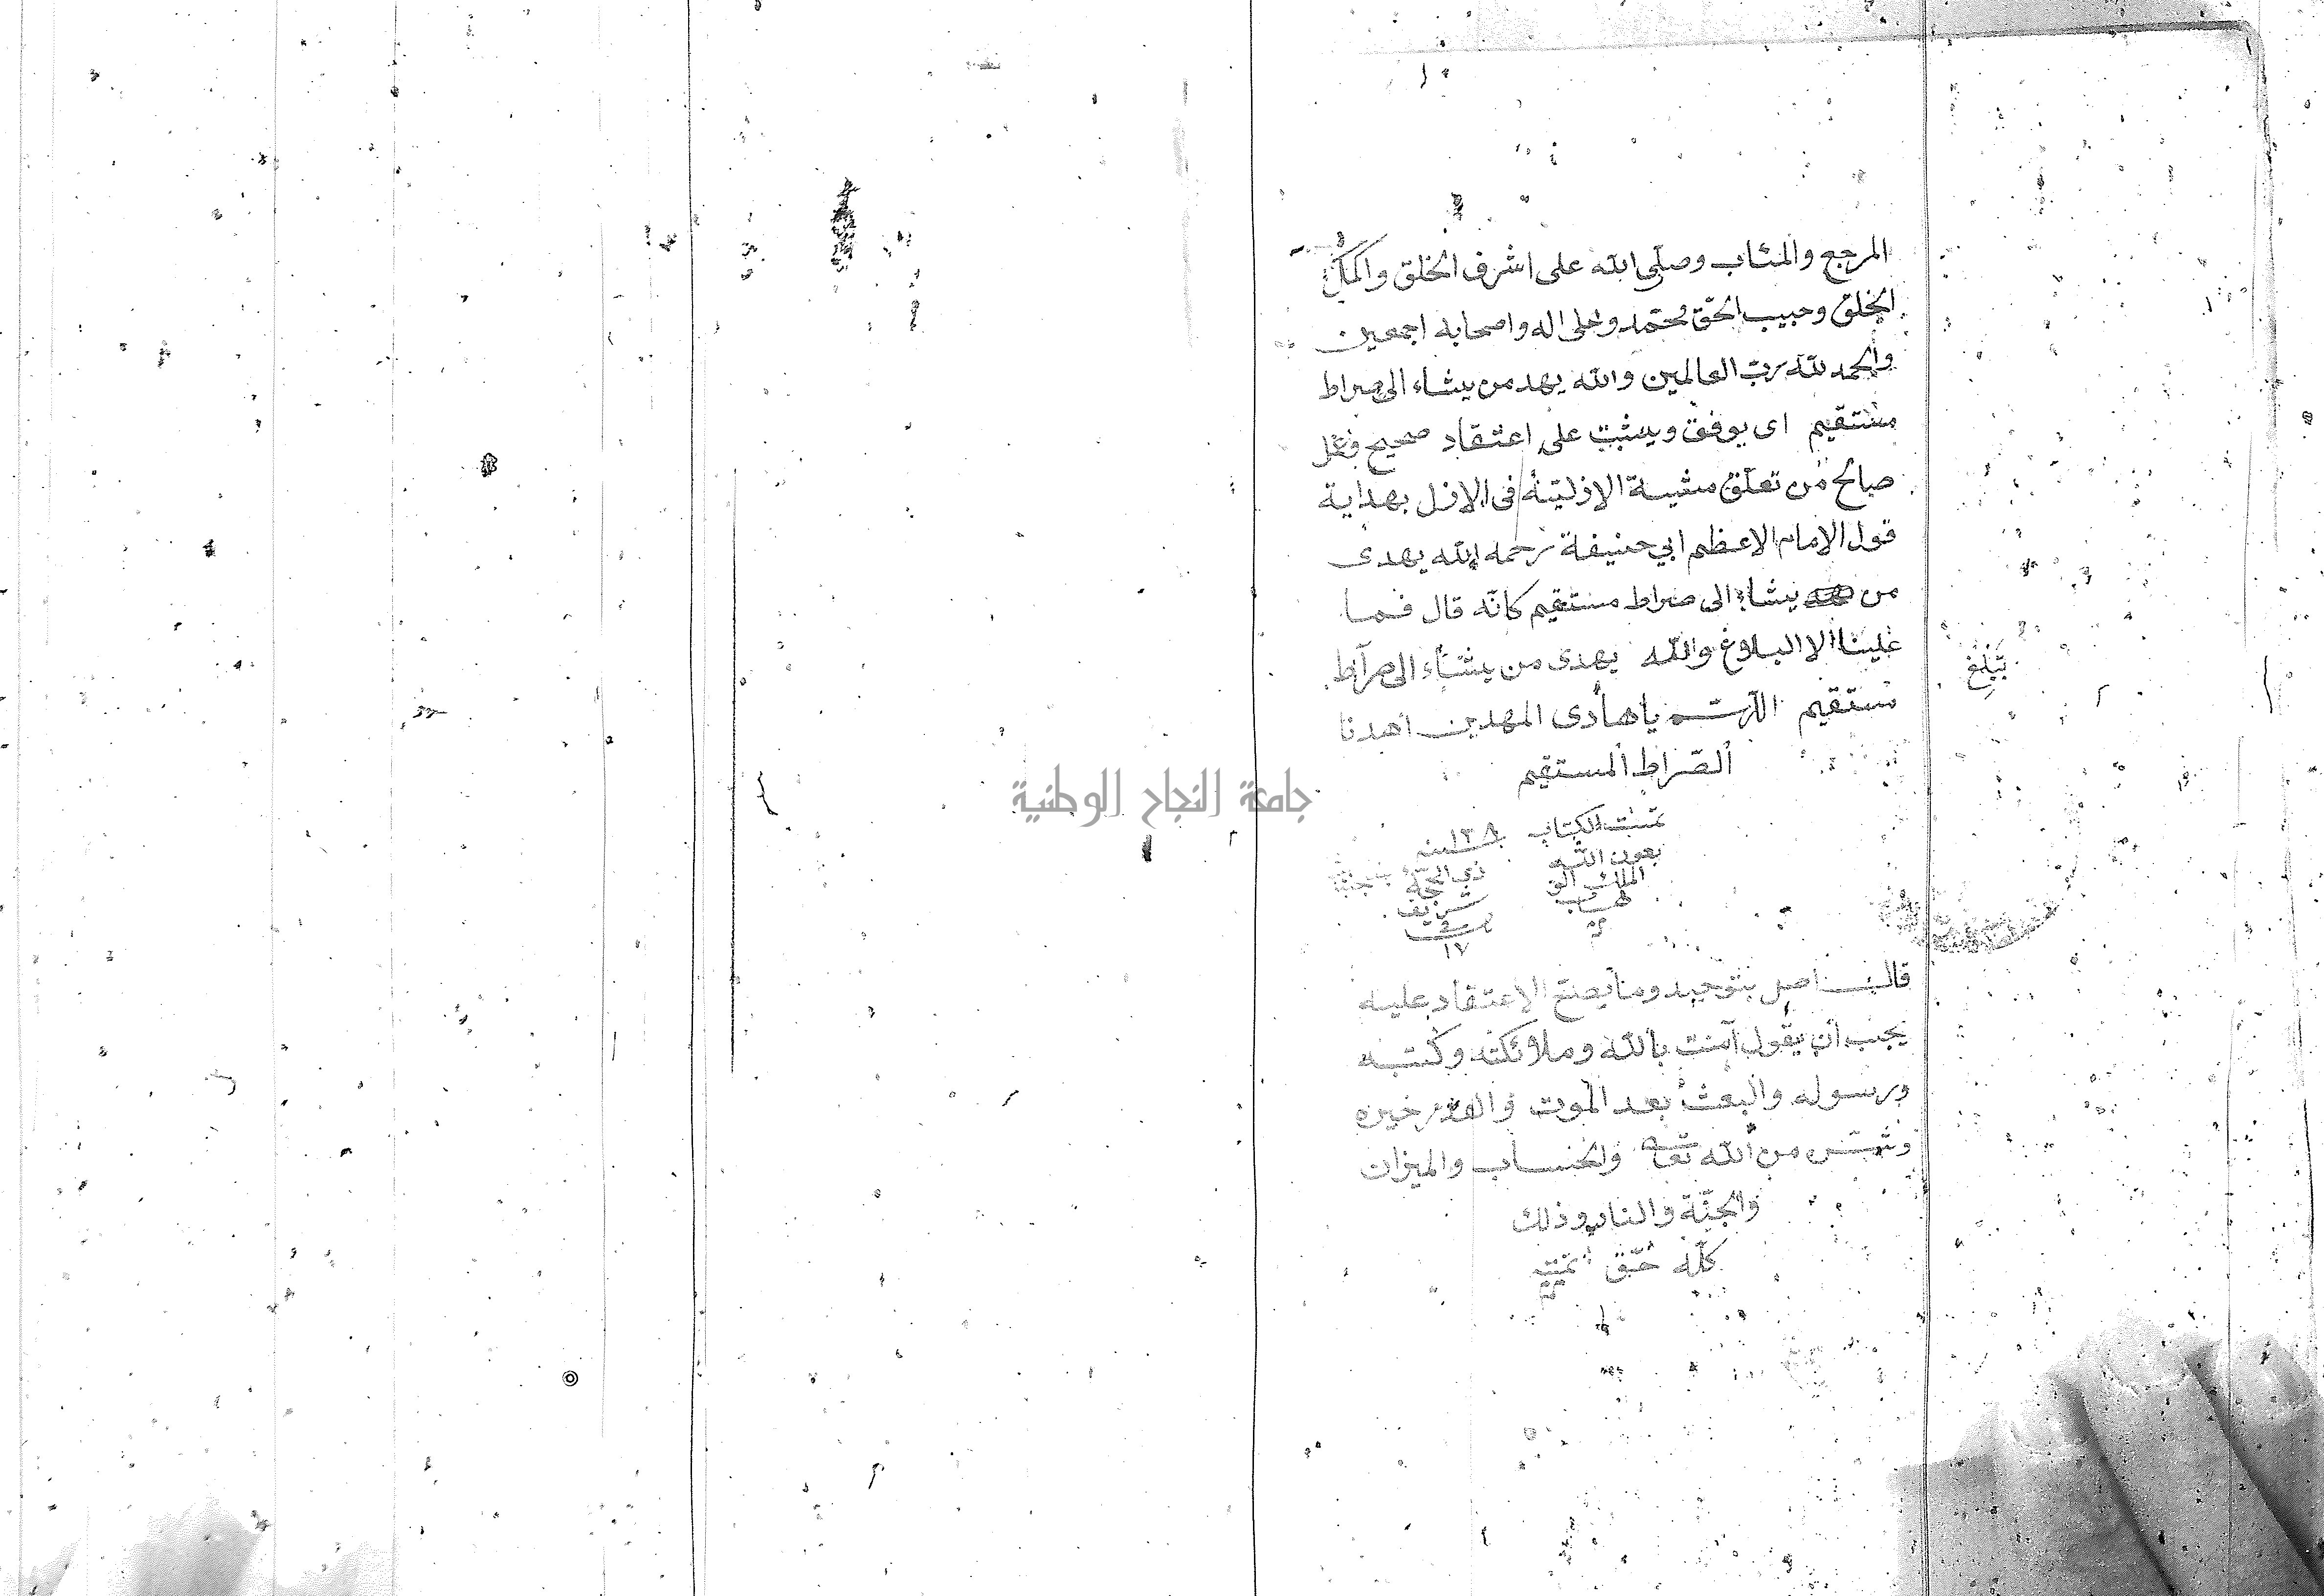 المرجع والمئاب وصلى الله على اشرف الخلق واكمل
الخلق وحبيب الحق محمد وعلى اله واصحابه اجمعين
والحمد لله رب العالمين والله يهد من يشاء الى صراط
مستقيم اى يوفق ويثبت على اعتقاد صحيح
صالح من تعلق مشيـة الازليته فى الازل بهداية
قول الامام الاعظم ابي حنيفة رحمه الله يهدى
من يشاء الى صراط مستقيم كانه قال فما
علينا الا البلاغ والله يهدى من يشاء الى صرآط
مستقيم يا هادى المهدين اهدنا
الصراط المستقيم
تبلغ
تمت الكتاب
بعون الله
الملك الو
هاب
سنه
ذي الحجة
شريف
فى
١٧
قال اصل بتوحيد وما يصح الاعتقاد عليه
يجب ان يقول آمنت بالله وملائكته وكتبه
ورسوله والبعث بعد الموت والقدر خيره
وشره من الله تعا والحساب والميزان
والجنة والنار وذلك
كله حق تمت
جامعة النجاح الوطنية